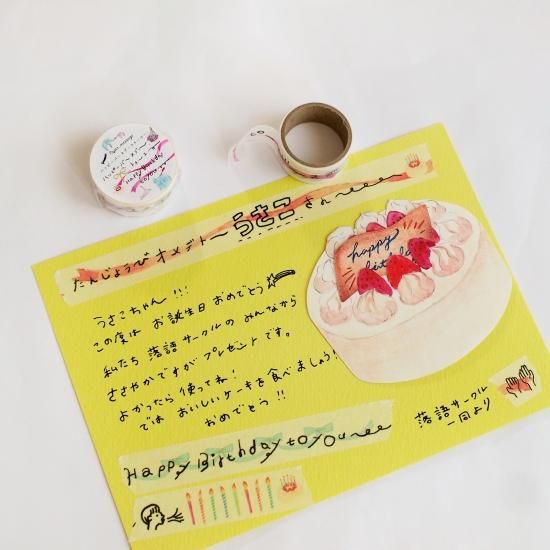 たんじょうび オメデト～ うさこ さん～
happy
birthday
うさこちゃん!!!
この度は お誕生日 おめでとう
私たち 落語サークルの みんなから
ささやかですが プレゼントです。
よかったら 使ってね!
では おいしいケーキを食べましょう!
おめでとう!!
落語サークル
一同より
Happy Birthday to you～